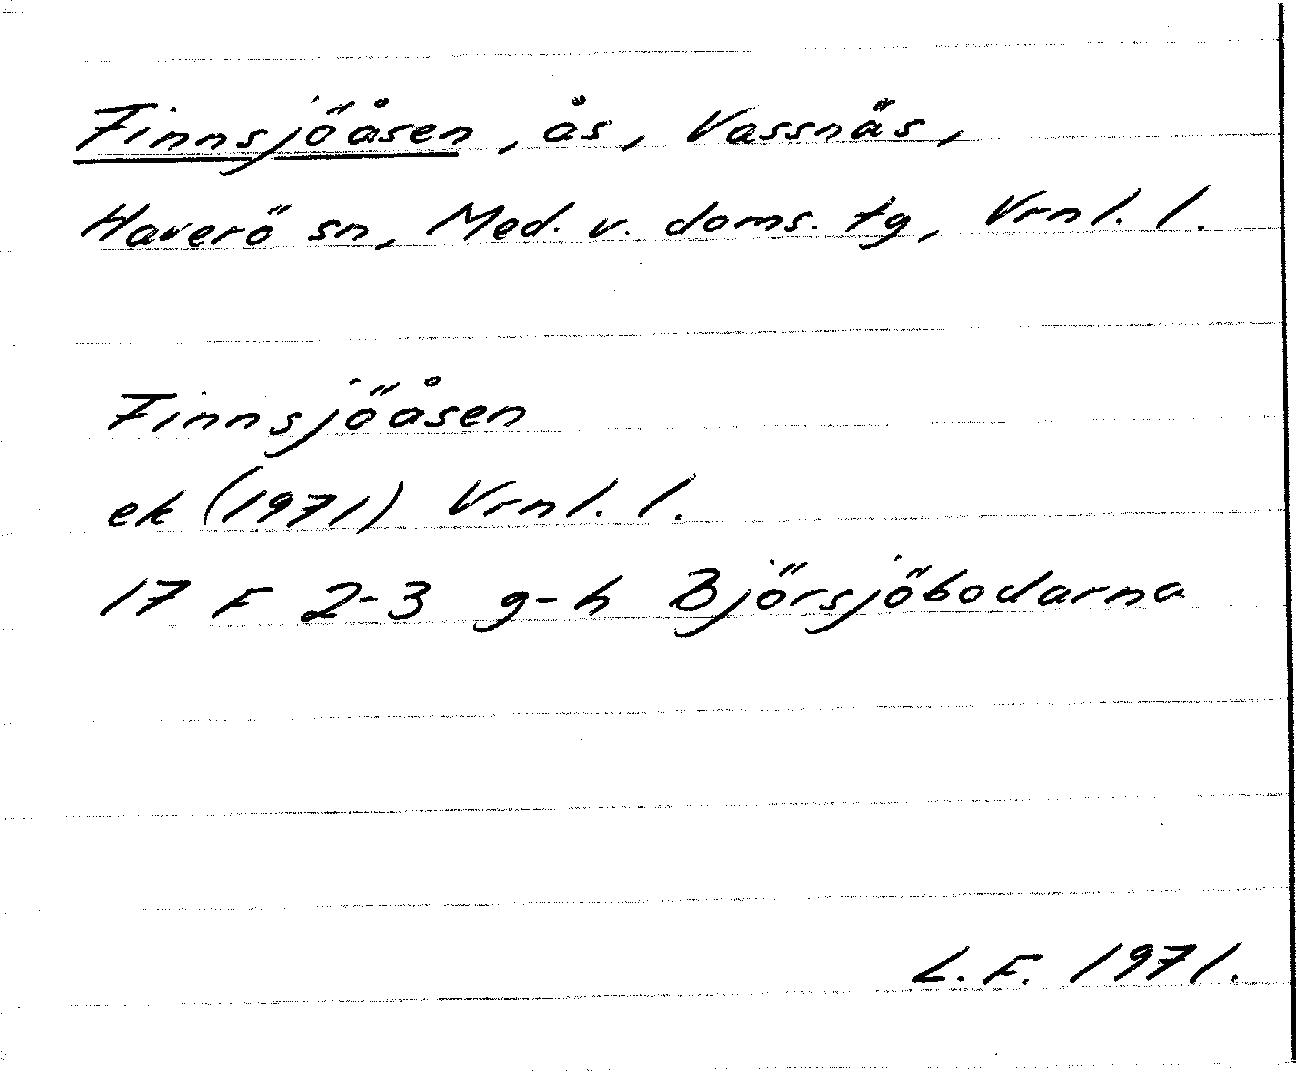 Finnsjöåsen, ås, Vassnäs,
Haverö sn, Med. v. doms. tg, Vrnl. l.
Finnsjöåsen
ek (1971) Vrnl. l.
17 F 2-3 g-h Björsjöbodarna
L. F. 1971.